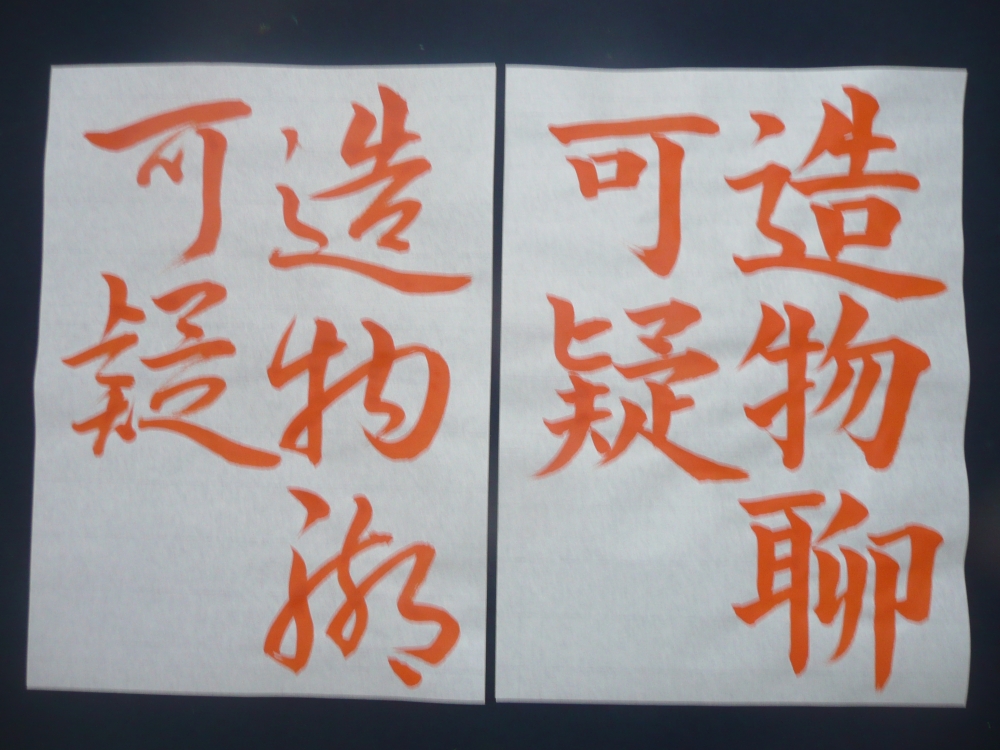 造物聊
可疑
造物聊
可疑